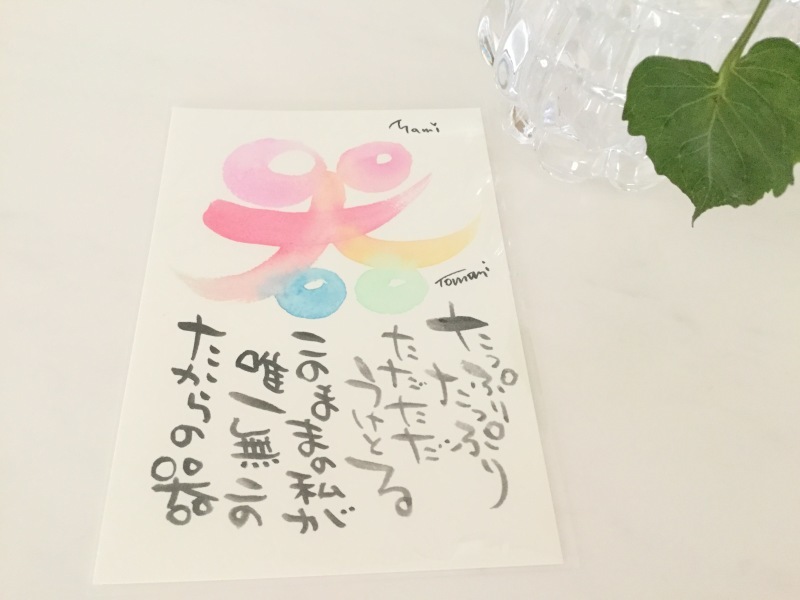 Mami
器
Tomomi
たっぷり
たっぷり
ただただ
うけとる
このままの私が
唯一無二の
たからの器